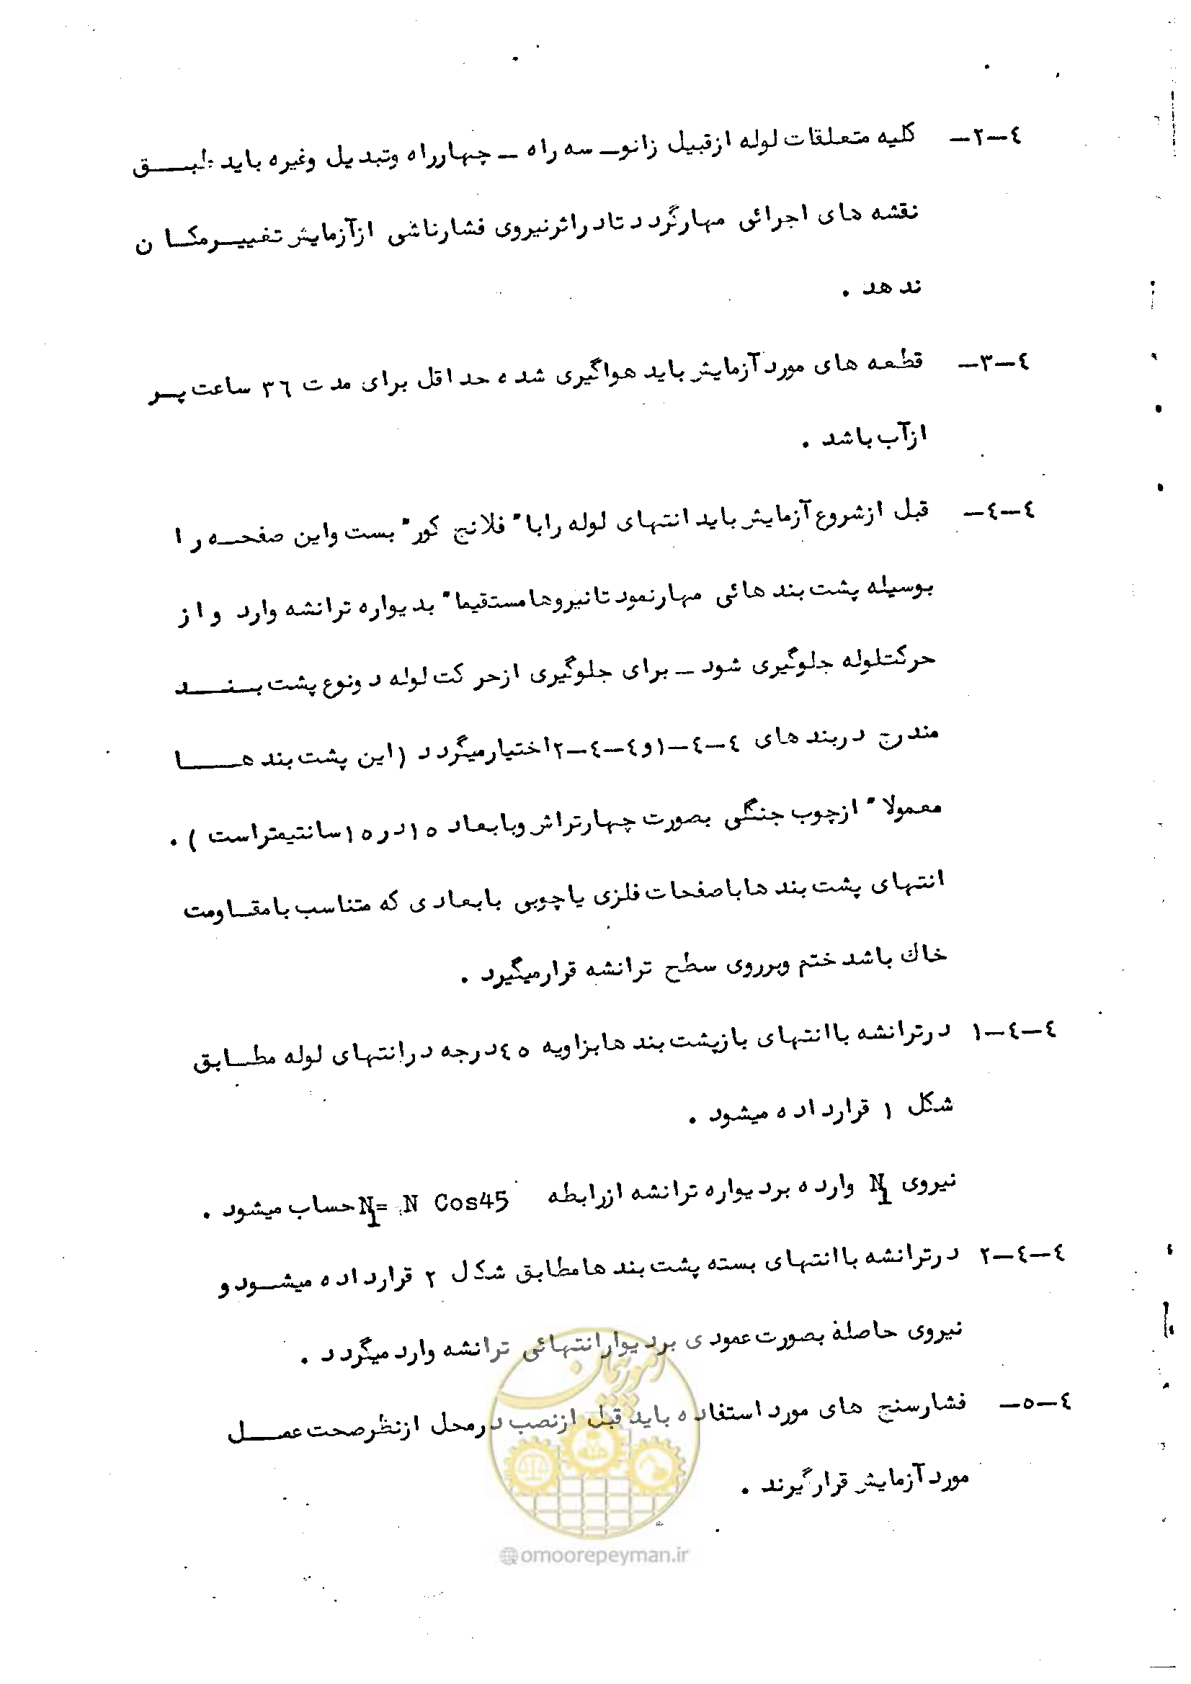 ٤-٢- کلیه متعلقات لوله ازقبیل زانو- سه راه - چهارراه وتبدیل وغیره باید طبق
نقشه های اجرائی مهارگردد تادراثرنیروی فشارناشی ازآزمایش تغییرمکان
ندهد .
٤-٣- قطعه های موردآزمایش باید هواگیری شده حداقل برای مدت ٣٦ ساعت پر
ازآب باشد .
٤-٤- قبل ازشروع آزمایش باید انتهای لوله رابا" فلانج کور" بست واین صفحه را
بوسیله پشت بند هائی مهارنمود تانیروهامستقیما" بدیواره ترانشه وارد و از
حرکت‌لوله جلوگیری شود - برای جلوگیری ازحرکت لوله دونوع پشت بند
مندرج دربند های ٤-٤-١و٤-٤-٢اختیارمیگردد (این پشت بند ها
معمولا" ازچوب جنگلی بصورت چهارتراش وبابعاد ١٥در١٥سانتیمتراست ) .
انتهای پشت بند هاباصفحات فلزی یاچوبی بابعادی که متناسب بامقاومت
خاك باشد ختم وبرروی سطح ترانشه قرارمیگیرد .
٤-٤-١ درترانشه باانتهای بازپشت بند هابزاویه ٤٥درجه درانتهای لوله مطابق
شکل ١ قرارداده میشود .
نیروی N1 وارده بردیواره ترانشه ازرابطه N1= N Cos45 حساب میشود .
٤-٤-٢ درترانشه باانتهای بسته پشت بند هامطابق شکل ٢ قرارداده میشود و
نیروی حاصلهٔ بصورت عمودی بردیوارانتهائی ترانشه واردمیگردد .
٤-٥- فشارسنج های مورد استفاده باید قبل ازنصب درمحل ازنظرصحت عمل
موردآزمایش قرارگیرند .
امور پیمان
@omoorepeyman.ir